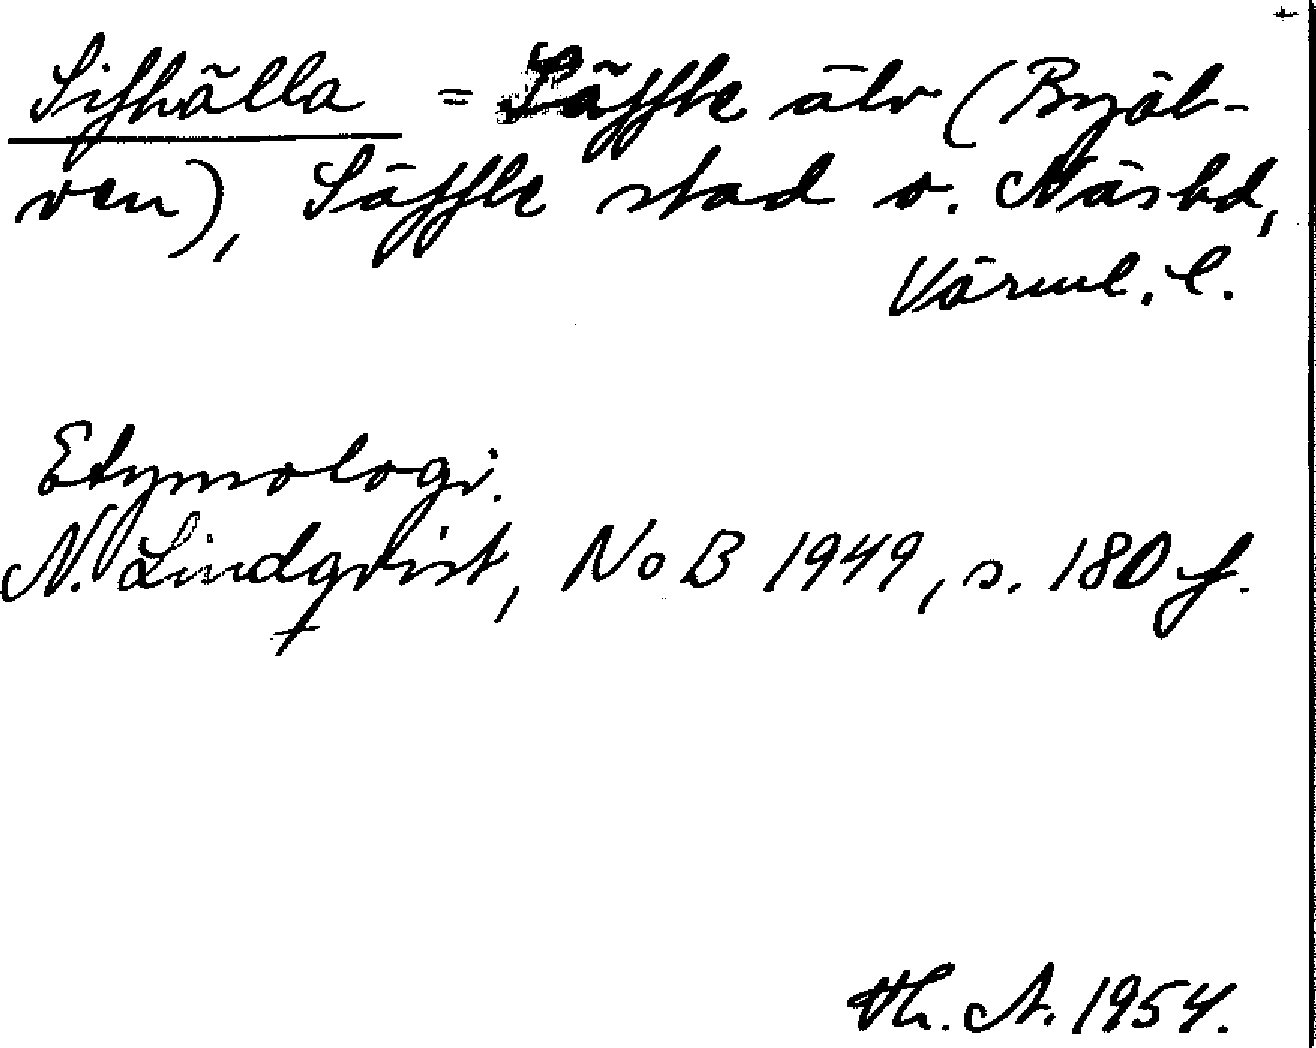 Sifhälla = Säffle älv (Byäl-
ven), Säffle stad o. Näs hd,
Värml. l.
Etymologi.
N. Lindqvist, NoB 1949, s. 180 f.
Th. A. 1954.